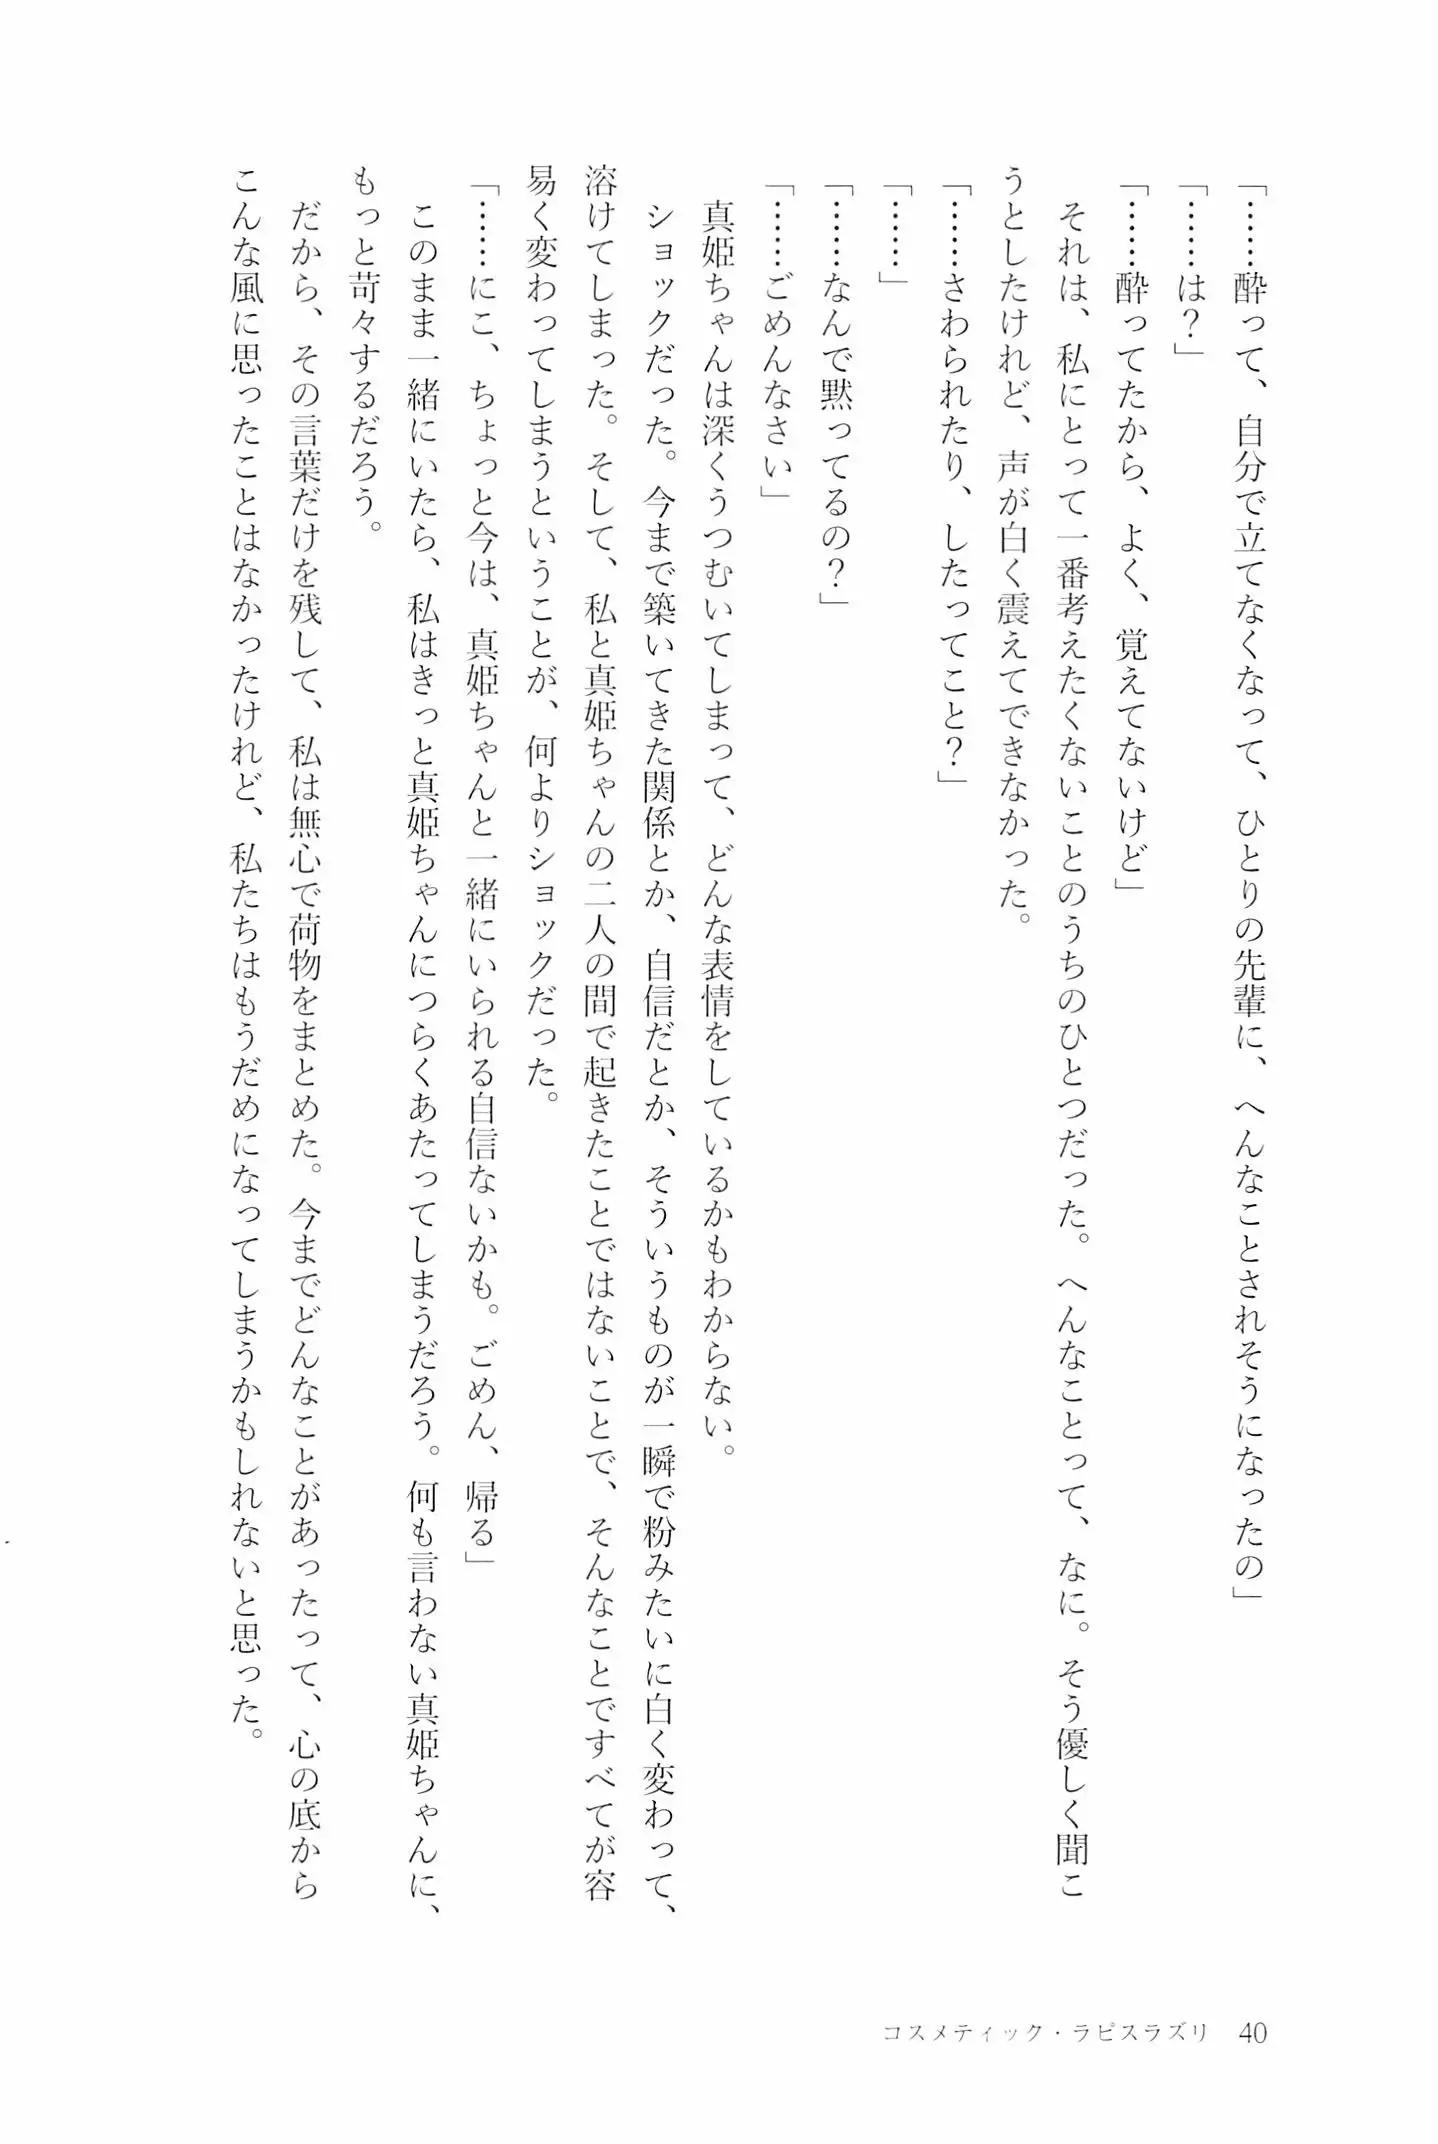 「……酔って、自分で立てなくなって、ひとりの先輩に、へんなことされそうになったの」
「……は？」
「……酔ってたから、よく、覚えてないけど」
　それは、私にとって一番考えたくないことのうちのひとつだった。へんなことって、なに。そう優しく聞こ
うとしたけれど、声が白く震えてできなかった。
「……さわられたり、したってこと？」
「……」
「……なんで黙ってるの？」
「……ごめんなさい」
　真姫ちゃんは深くうつむいてしまって、どんな表情をしているかもわからない。
　ショックだった。今まで築いてきた関係とか、自信だとか、そういうものが一瞬で粉みたいに白く変わって、
溶けてしまった。そして、私と真姫ちゃんの二人の間で起きたことではないことで、そんなことですべてが容
易く変わってしまうということが、何よりショックだった。
「……にこ、ちょっと今は、真姫ちゃんと一緒にいられる自信ないかも。ごめん、帰る」
　このまま一緒にいたら、私はきっと真姫ちゃんにつらくあたってしまうだろう。何も言わない真姫ちゃんに、
もっと苛々するだろう。
　だから、その言葉だけを残して、私は無心で荷物をまとめた。今までどんなことがあったって、心の底から
こんな風に思ったことはなかったけれど、私たちはもうだめになってしまうかもしれないと思った。
コスメティック・ラピスラズリ　40